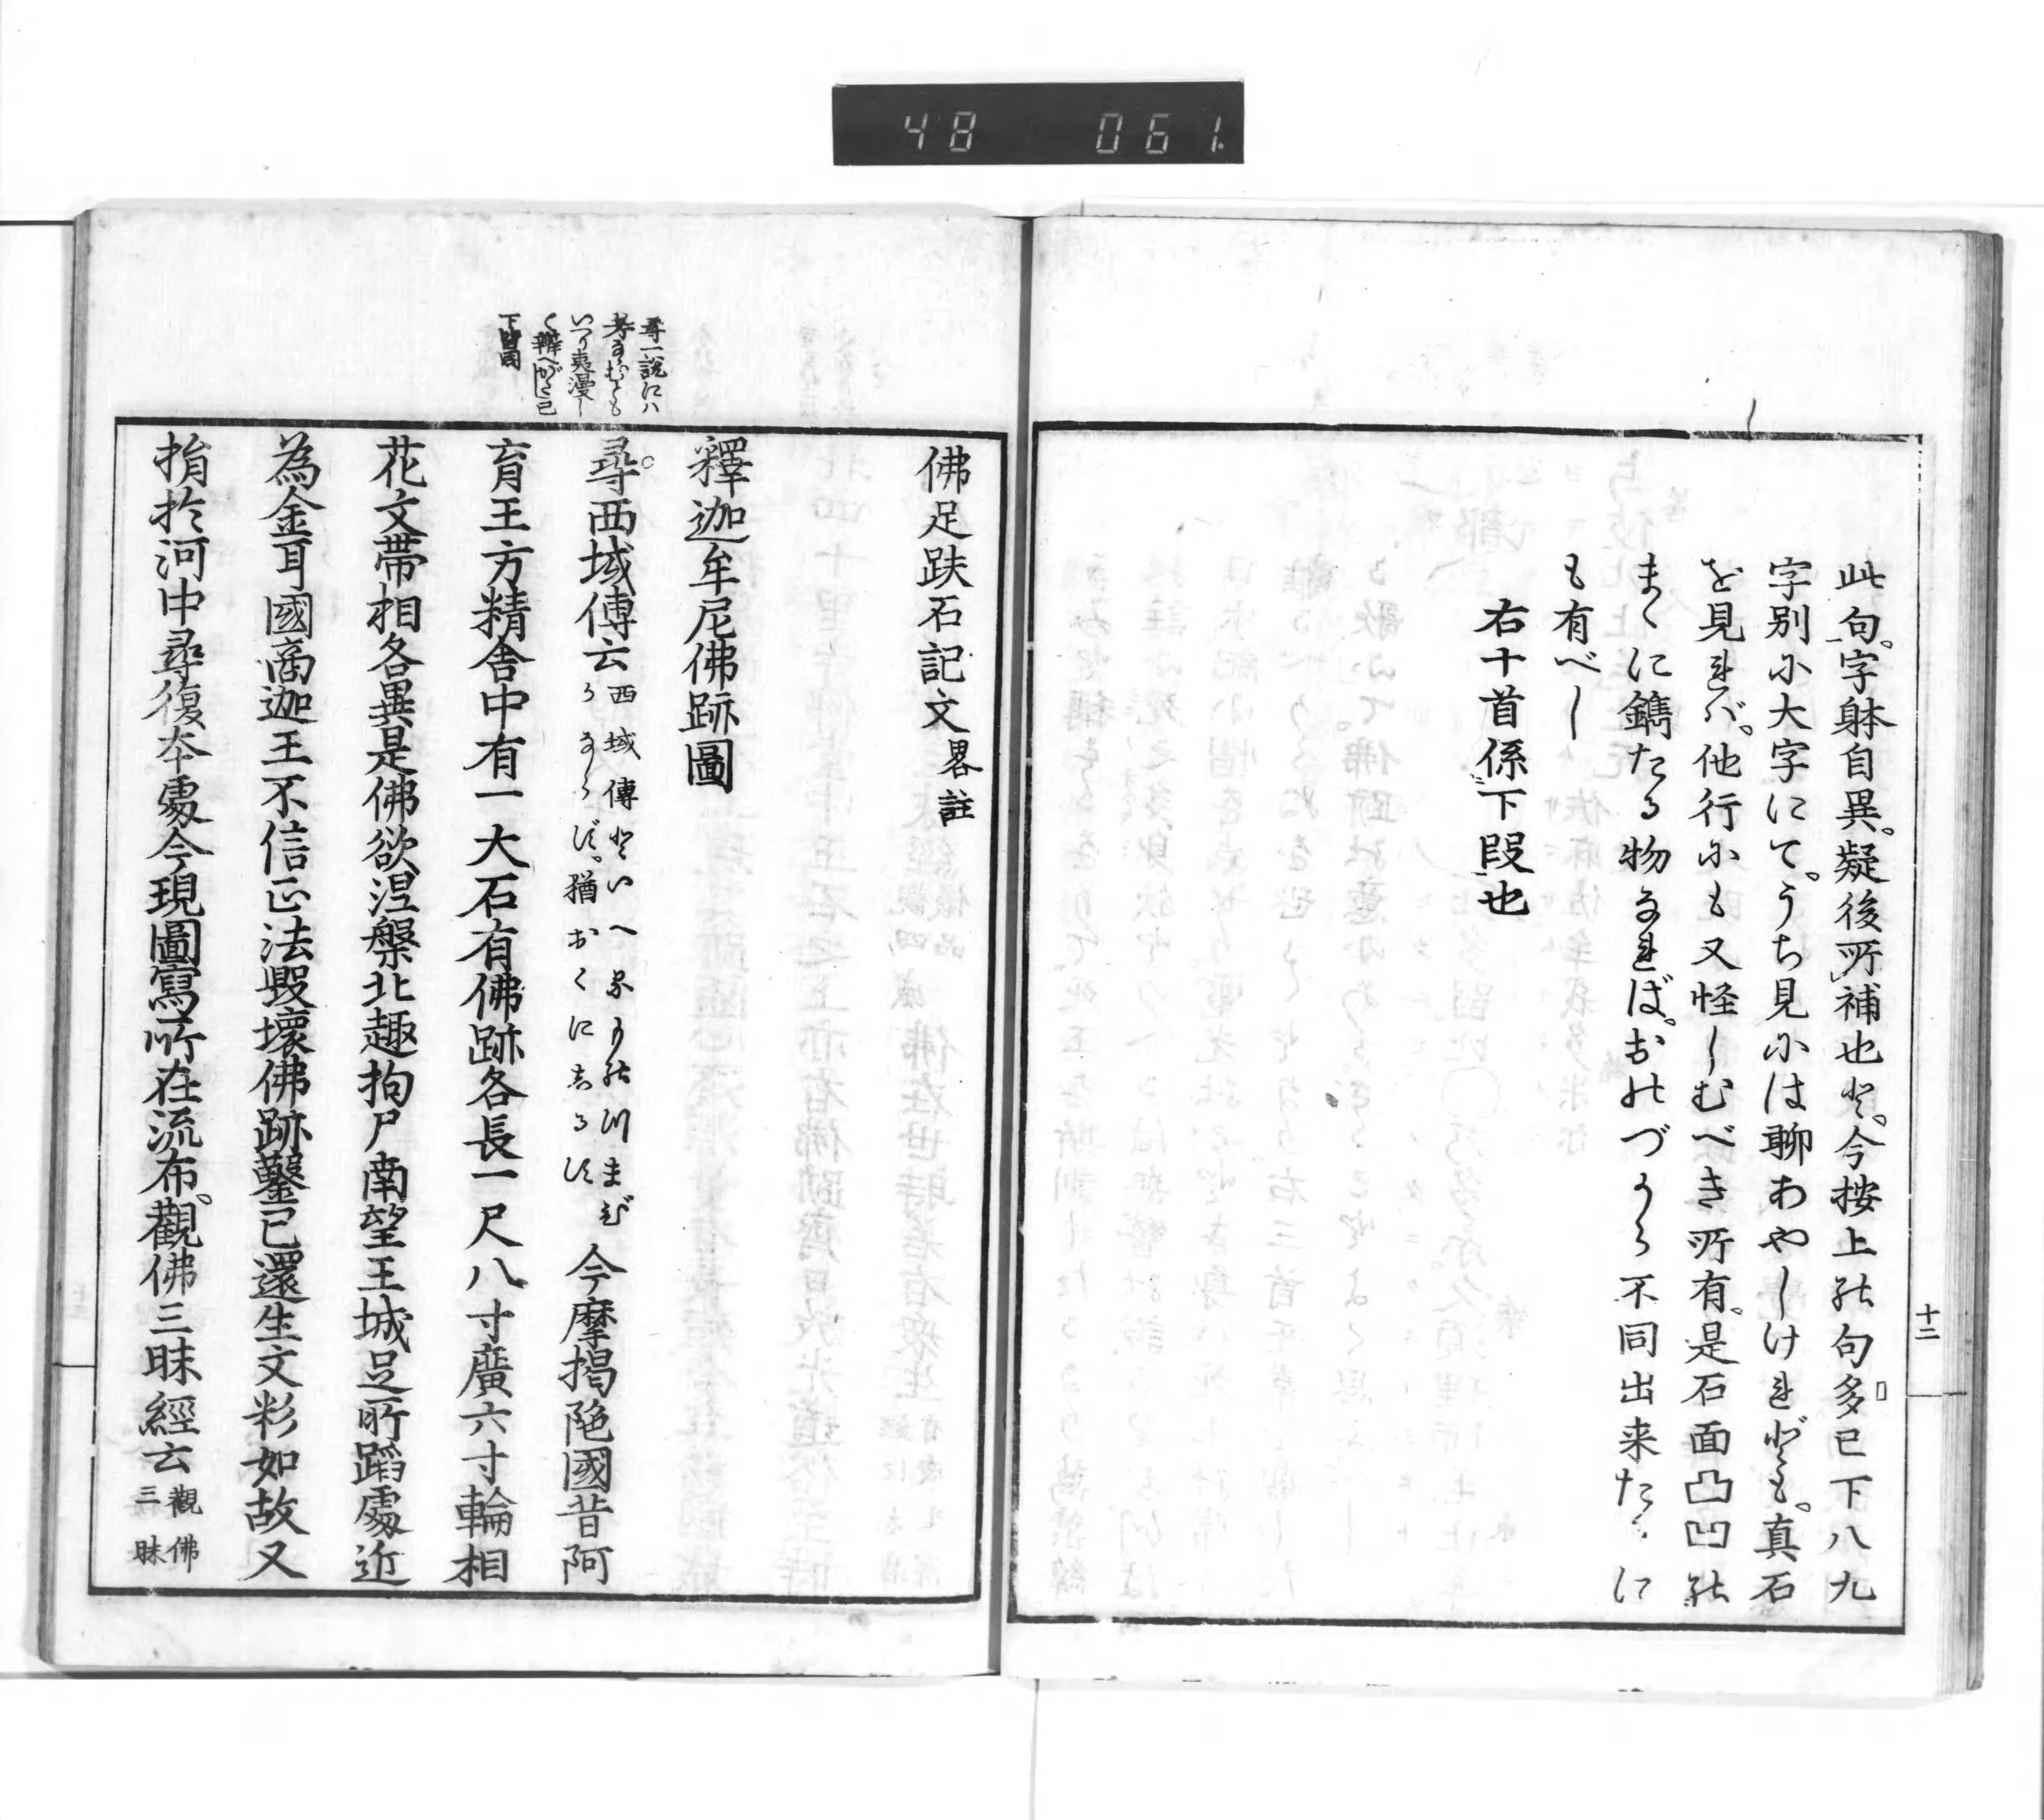 48 061.
此句。字躰自異。疑後所補也と。今按上の句多已下八九
字別に大字にて。うち見には聊あやしけれども。真石
を見れバ。他行にも又怪しむべき所有。是石面凸凹の
まゝに鐫たる物なれば。おのづから不同出来たるに
も有べし
右十首係下段也
十二
佛足跌石記文畧註
釋迦牟尼佛跡圖
尋一說にハ
考なむとも
いへり爽漫し
く辨へがたし已
下皆同
尋。西域傳云
西域傳といへ
るならず。猶おくにしるす
今摩揭陁國昔阿
育王方精舍中有一大石有佛跡各長一尺八寸廣六寸輪相
花文帶相各異是佛欲涅槃北趣拘尸南望王城足所蹈處近
為金耳國商迦王不信正法毀壞佛跡鑿已還生文彩如故又
捐於河中尋復本處今現圖寫所在流布。觀佛三昧經云
觀佛
三昧